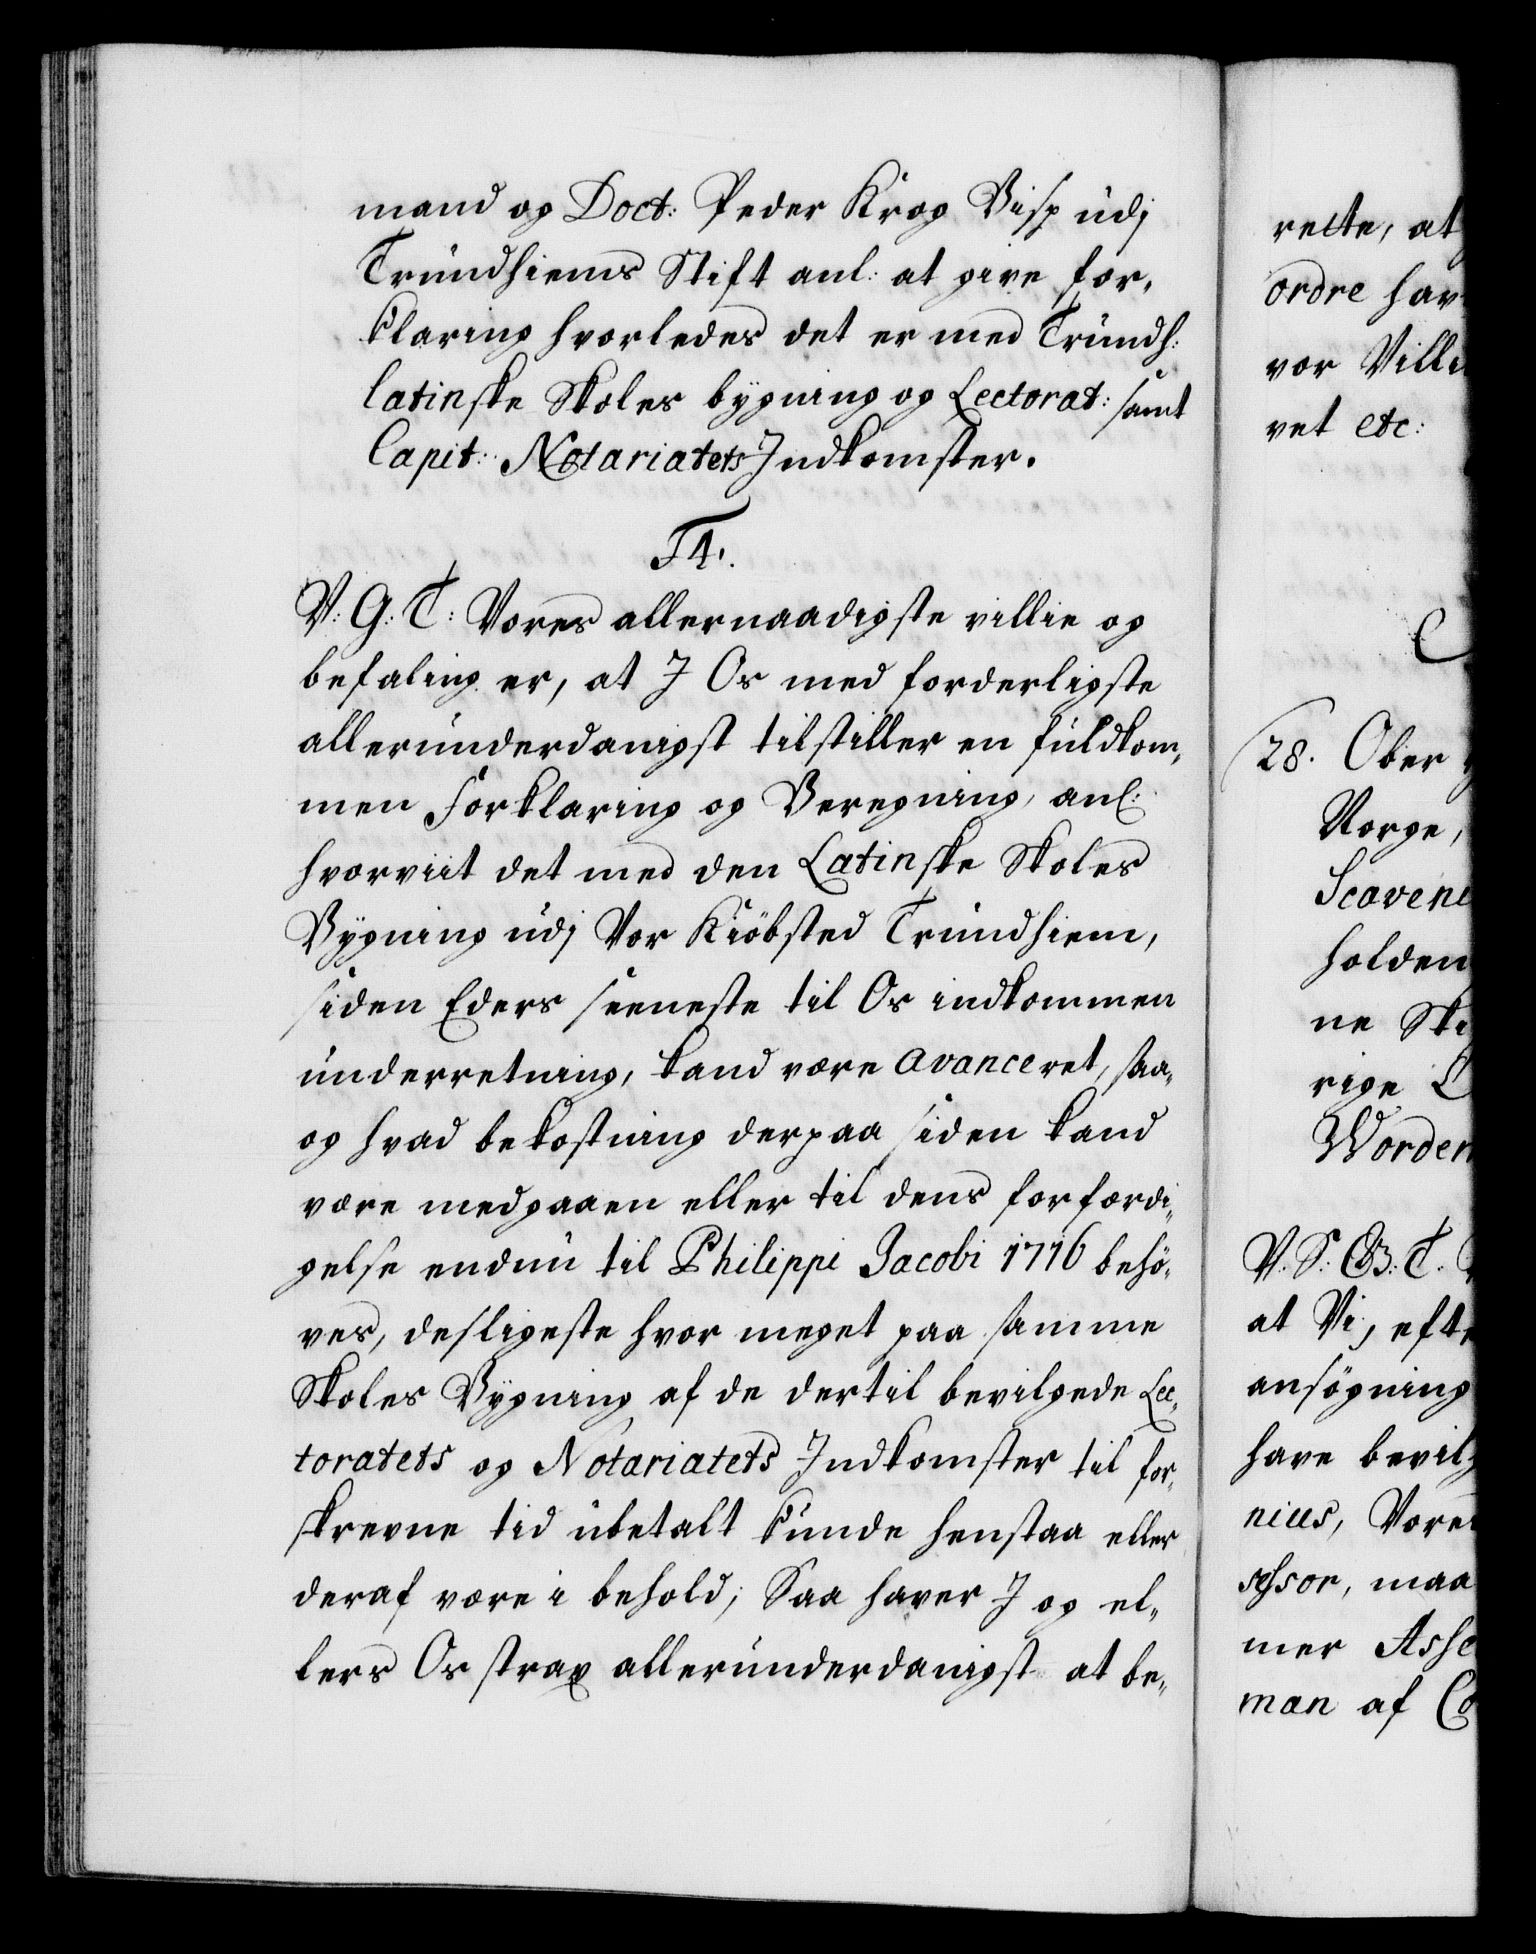 mand og Doct: Peder Krog Bisp udj
Trundhiems Stift anl: at give for„
klaring hvorledes det er med Trundh:
latinske Skoles bygning og Lectorat: samt
Capit: Notariatets Indkomster.
F4.
V: G: T: Vores allernaadigste villie og
befaling er, at I Os med forderligste
allerunderdanigst tilstiller en fuldkom„
men forklaring og Beregning, anl:
hvorviit det med den Latinske Skoles
Bygning udj Vor Kiöbsted Trundhiem,
siden Eders seeneste til Os indkommen
underretning, kand være avanceret, saa„
og hvad bekostning derpaa siden kand
være medgaaen eller til dens forfærdi„
gelse endnu til Philippi Jacobi 1716 behö„
ves, desligeste hvor meget paa samme
Skoles Bygning af de dertil bevilgede Lec„
toratets og Notariatets Indkomster til for„
skrevne tid ubetalt kunde henstaa eller
deraf være i behold; Saa haver I og el„
lers Os strax allerunderdanigst at be„
rette, at
ordre hav
vor Villi
vet etc:
28. Ober
Norge,
Scaveni
holden
ne Sti
rige
Worden
V. S: G: T.
at Vi, efte
ansögning
have bevilg
nius, Vore
sessor, maa
mer Asse
man af Co